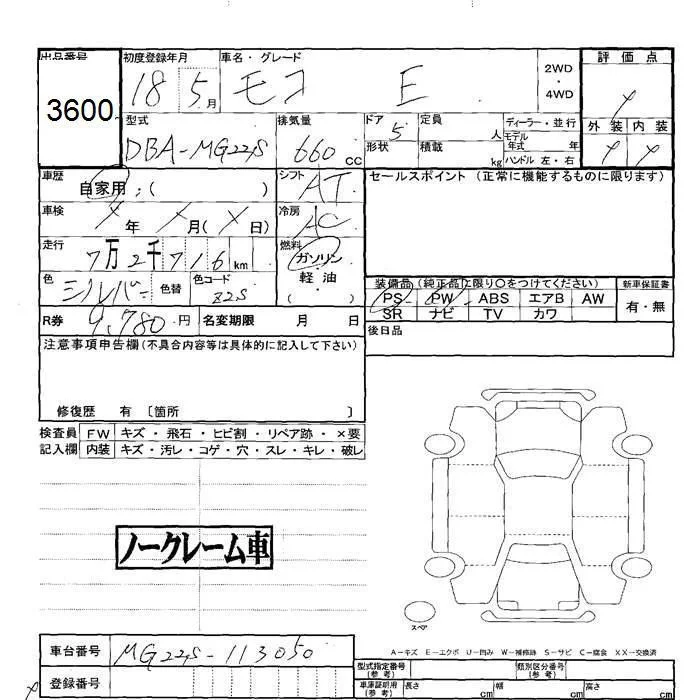 出品番号 初度登録年月 車名・グレード 評価点
3600 18 5月 モコ E 2WD・4WD
型式 排気量 ドア 定員 ディーラー・並行 外装 内装
DBA-MG22S 660cc 5 人 モデル年式 年
形状 積載 kg ハンドル 左・右
車歴 自家用;( ) シフト AT セールスポイント(正常に機能するものに限ります)
車検 年 月( 日) 冷房 AC
走行 7万2千716km 燃料 ガソリン・軽油( )
色 シルバー 色替 色コード Z2S
装備品(純正品に限り○をつけてください) 新車保証書
PS PW ABS エアB AW 有・無
SR ナビ TV カワ
R券 9,780円 名変期限 月 日 後日品
注意事項申告欄(不具合内容等は具体的に記入して下さい)
修復歴 有 〔箇所 〕
検査員 FW キズ・飛石・ヒビ割・リペア跡・×要
記入欄 内装 キズ・汚レ・コゲ・穴・スレ・キレ・破レ
ノークレーム車
スペア
A-キズ E-エクボ U-凹み W-補修跡 S-サビ C-腐食 XX-交換済
車台番号 MG22S-113050 型式指定番号(参考) 類別区分番号(参考)
登録番号 車庫証明用(参考) 長さ cm 幅 cm 高さ cm